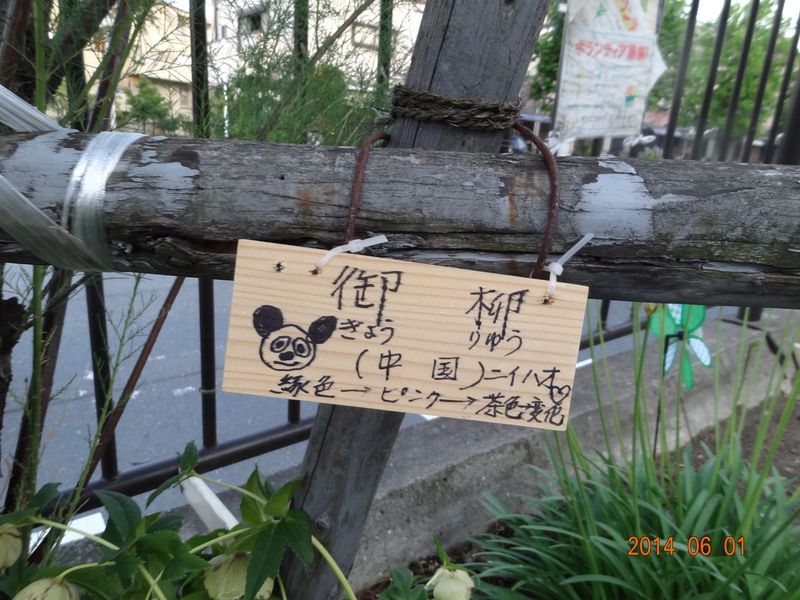 ボランティア募集!
御 柳
きょう りゅう
(中 国)ニイハオ
緑色→ピンク→茶色変化
2014 06 01